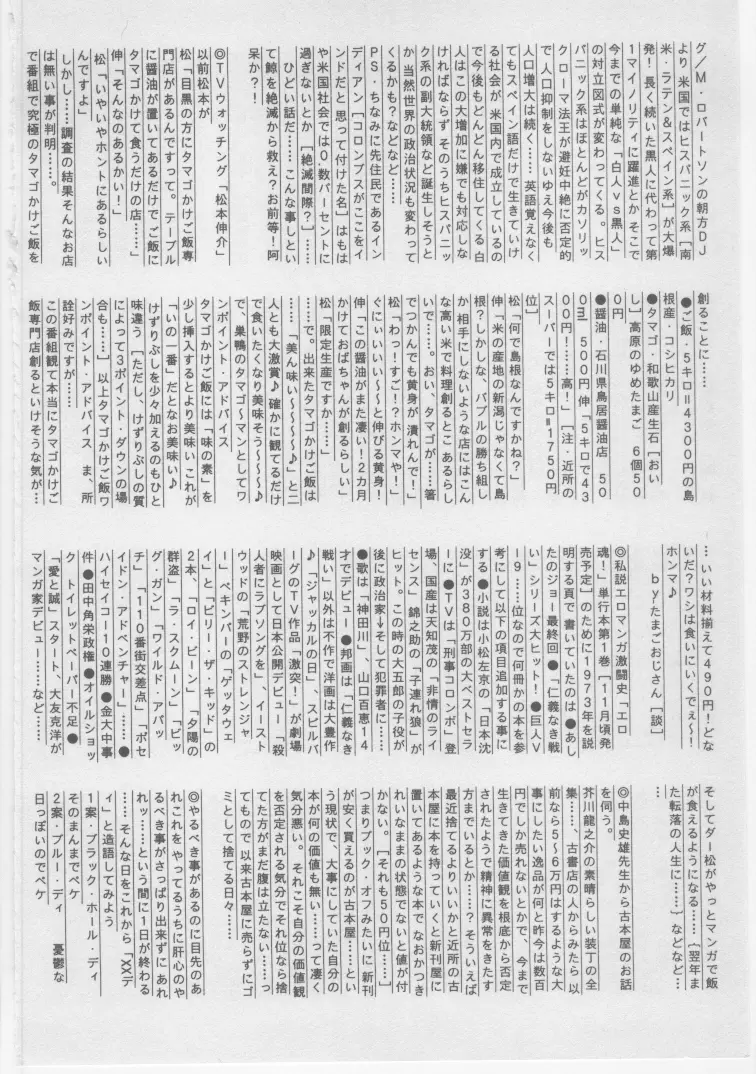 グ/M・ロバートソンの朝方DJ
より 米国ではヒスパニック系[南
米・ラテン&スペイン系]が大爆
発!長く続いた黒人に代わって第
1マイノリティに躍進とか そこで
今までの単純な「白人vs黒人」
の対立図式が変わってくる。ヒス
パニック系はほとんどがカソリッ
クローマ法王が避妊中絶に否定的
で人口抑制をしないゆえ今後も
人口増大は続く……英語覚えなく
てもスペイン語だけで生きていけ
る社会が 米国内で成立しているの
で今後もどんどん移住してくる 白
人はこの大増加に嫌でも対応しな
ければならず そのうちヒスパニッ
ク系の副大統領など誕生しそうと
か 当然世界の政治状況も変わって
くるかも?などなど……
PS・ちなみに先住民であるイン
ディアン[コロンブスがここをイ
ンドだと思って付けた名]はもは
や米国社会では0・数パーセントに
過ぎないとか[絶滅間際?]……
ひどい話だ……こんな事しとい
て鯨を絶滅から救え?お前等!阿
呆か?!
◎TVウォッチング「松本伸介」
以前松本が
松「目黒の方にタマゴかけご飯専
門店があるんですって。テーブル
に醤油が置いてあるだけでご飯に
タマゴかけて食うだけの店……」
伸「そんなのあるかい!」
松「いやいやホントにあるらしい
んですよ」
しかし……調査の結果そんなお店
は無い事が判明……。
で番組で究極のタマゴかけご飯を
創ることに……
●ご飯・5キロ=4300円の島
根産・コシヒカリ
●タマゴ・和歌山産生石[おい
し]高原のゆめたまご 6個50
0円
●醤油・石川県鳥居醤油店 50
0ml 500円 伸「5キロで43
00円!……高!」[注・近所の
スーパーでは5キロ=1750円
位]
松「何で島根なんですかね?」
伸「米の産地の新潟じゃなくて島
根?しかしな、バブルの勝ち組し
か相手にしないような店にはこん
な高い米で料理創るとこあるらし
いで……。おい、タマゴが……箸
でつかんでも黄身が潰れんで!」
松「わっ!すご!?ホンマや!」
ぐにぃいいい〜〜と伸びる黄身!
伸「この醤油がまた凄い!2カ月
かけておばちゃんが創るらしい」
松「限定生産ですか……」
……で。出来たタマゴかけご飯は
……「美ん味い〜〜〜〜♪」と二
人とも大激賞♪確かに観てるだけ
で食いたくなり美味そう〜〜〜♪
で、巣鴨のタマゴ〜マンとしてワ
ンポイント・アドバイス
タマゴかけご飯には「味の素」を
少し挿入するとより美味い これが
「いの一番」だとなお美味い♪
けずりぶしを少々加えるのもひと
味違う[ただし、けずりぶしの質
によって3ポイント・ダウンの場
合も……]以上タマゴかけご飯ワ
ンポイント・アドバイス ま、所
詮好みですが……
この番組観て本当にタマゴかけご
飯専門店創るといけそうな気が…
…いい材料揃えて490円!どな
いだ?ワシは食いにいくでぇ〜!
ホンマ♪
byたまごおじさん[談]
◎私説エロマンガ激闘史「エロ
魂!」単行本第1巻[11月頃発
売予定]のために1973年を説
明する頁で書いていたのは●あし
たのジョー最終回●「仁義なき戦
い」シリーズ大ヒット!●巨人V
19……位なので何冊かの本を参
考にして以下の項目追加する事に
する●小説は小松左京の「日本沈
没」が380万部の大ベストセラ
ーに●TVは「刑事コロンボ」登
場、国産は天知茂の「非情のライ
センス」錦之助の「子連れ狼」が
ヒット。この時の大五郎の子役が
後に政治家→そして犯罪者に……
●歌は「神田川」、山口百恵14
才でデビュー●邦画は「仁義なき
戦い」以外は不作で洋画は大豊作
♪「ジャッカルの日」、スピルバ
ーグのTV作品「激突!」が劇場
映画として日本公開デビュー「殺
人者にラブソングを」、イースト
ウッドの「荒野のストレンジャ
ー」ペキンパーの「ゲッタウェ
イ」と「ビリー・ザ・キッド」の
2本、「ロイ・ビーン」「夕陽の
群盗」「ラ・スクムーン」「ビッ
グ・ガン」「ワイルド・アパッ
チ」「110番街交差点」「ポセ
イドン・アドベンチャー」……●
ハイセイコー10連勝●金大中事
件●田中角栄政権●オイルショッ
ク トイレットペーパー不足●
「愛と誠」スタート、大友克洋が
マンガ家デビュー……など……
そしてダー松がやっとマンガで飯
が食えるようになる……[翌年ま
た転落の人生に……]などなど…
…
◎中島史雄先生から古本屋のお話
を伺う。
芥川龍之介の素晴らしい装丁の全
集……古書店の人からみたら 以
前なら5〜6万円はするような大
事にしたい逸品が何と昨今は数百
円でしか売れないとかで、今まで
生きてきた価値観を根底から否定
されたようで精神に異常をきたす
方までいるとか……?そういえば
最近捨てるよりいいかと近所の古
本屋に本を持っていくと新刊屋に
置いてあるような本で なおかつき
れいなままの状態でないと値が付
かない。[それも50円位……]
つまりブック・オフみたいに 新刊
が安く買えるのが古本屋……とい
う現状で、大事にしていた自分の
本が何の価値も無い……って凄く
気分悪い。それこそ自分の価値観
を否定される気分でそれ位なら捨
てた方がまだ腹は立たない……っ
てもので 以来古本屋に売らずにゴ
ミとして捨てる日々……
◎やるべき事があるのに目先のあ
れこれを やってるうちに肝心のや
るべき事がさっぱり出来ずに あれ
れッ……という間に1日が終わる
……そんな日をこれから「XXデ
ィ」と造語してみよう
1案・ブラック・ホール・ディ
そのまんまでペケ
2案・ブルー・ディ 憂鬱な
日っぽいのでペケ